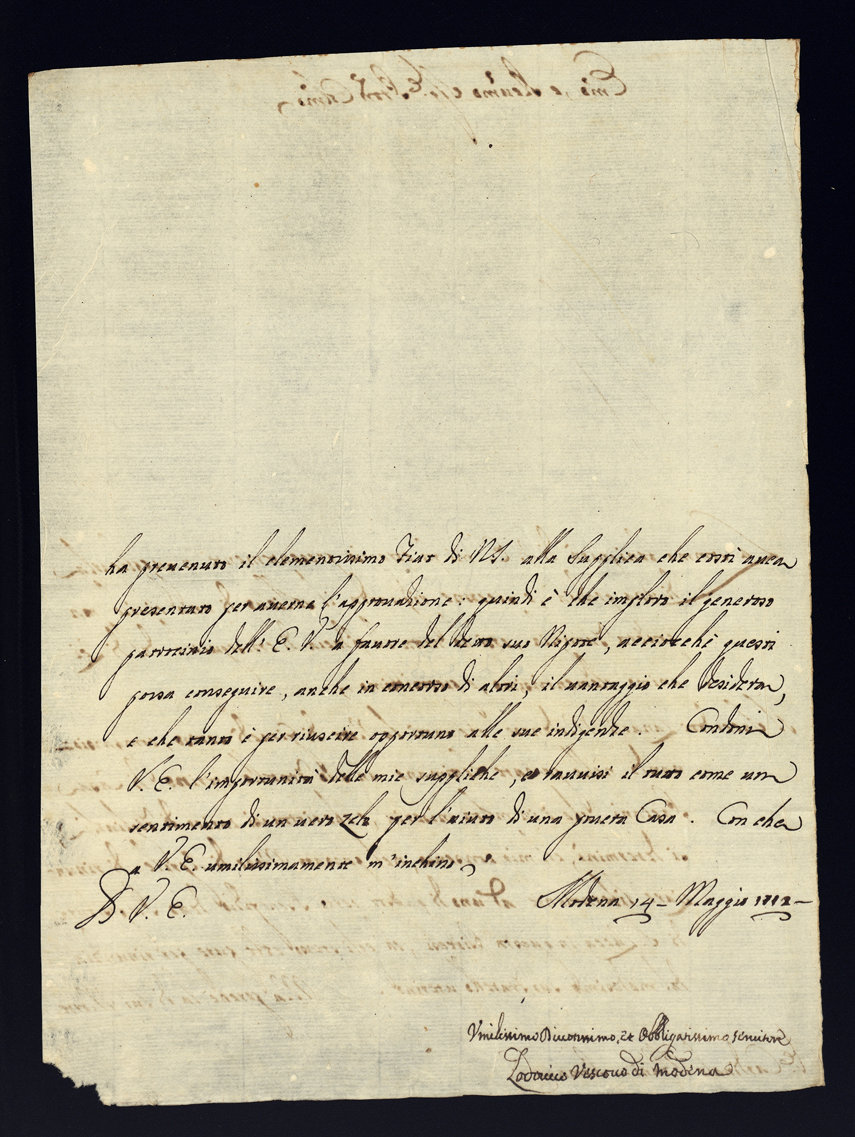 ha preuenuto il clementissimo Fiat di N.S. alla Supplica che costì auea
presentato per auerne l'approuazione: quindi è che imploro il generoso
patrocinio dell' E. V. à fauore del detto suo Nipote, acciocchè questi
possa conseguire, anche in concorso di altri, il uantaggio che desidera,
e che tanto è per riuscire opportuno alle sue indigenze. Condoni
V. E. l'importunità delle mie suppliche, et rauuisi il tutto come un
sentimento di un uero zelo per l'aiuto di una pouera Casa. Con che
a V. E. umilissimamente m'inchino.
D V. E. Modena 14 Maggio
Vmilissimo Diuotissimo, et Obbligatissimo seruitore
Lodouico Vescouo di Modena